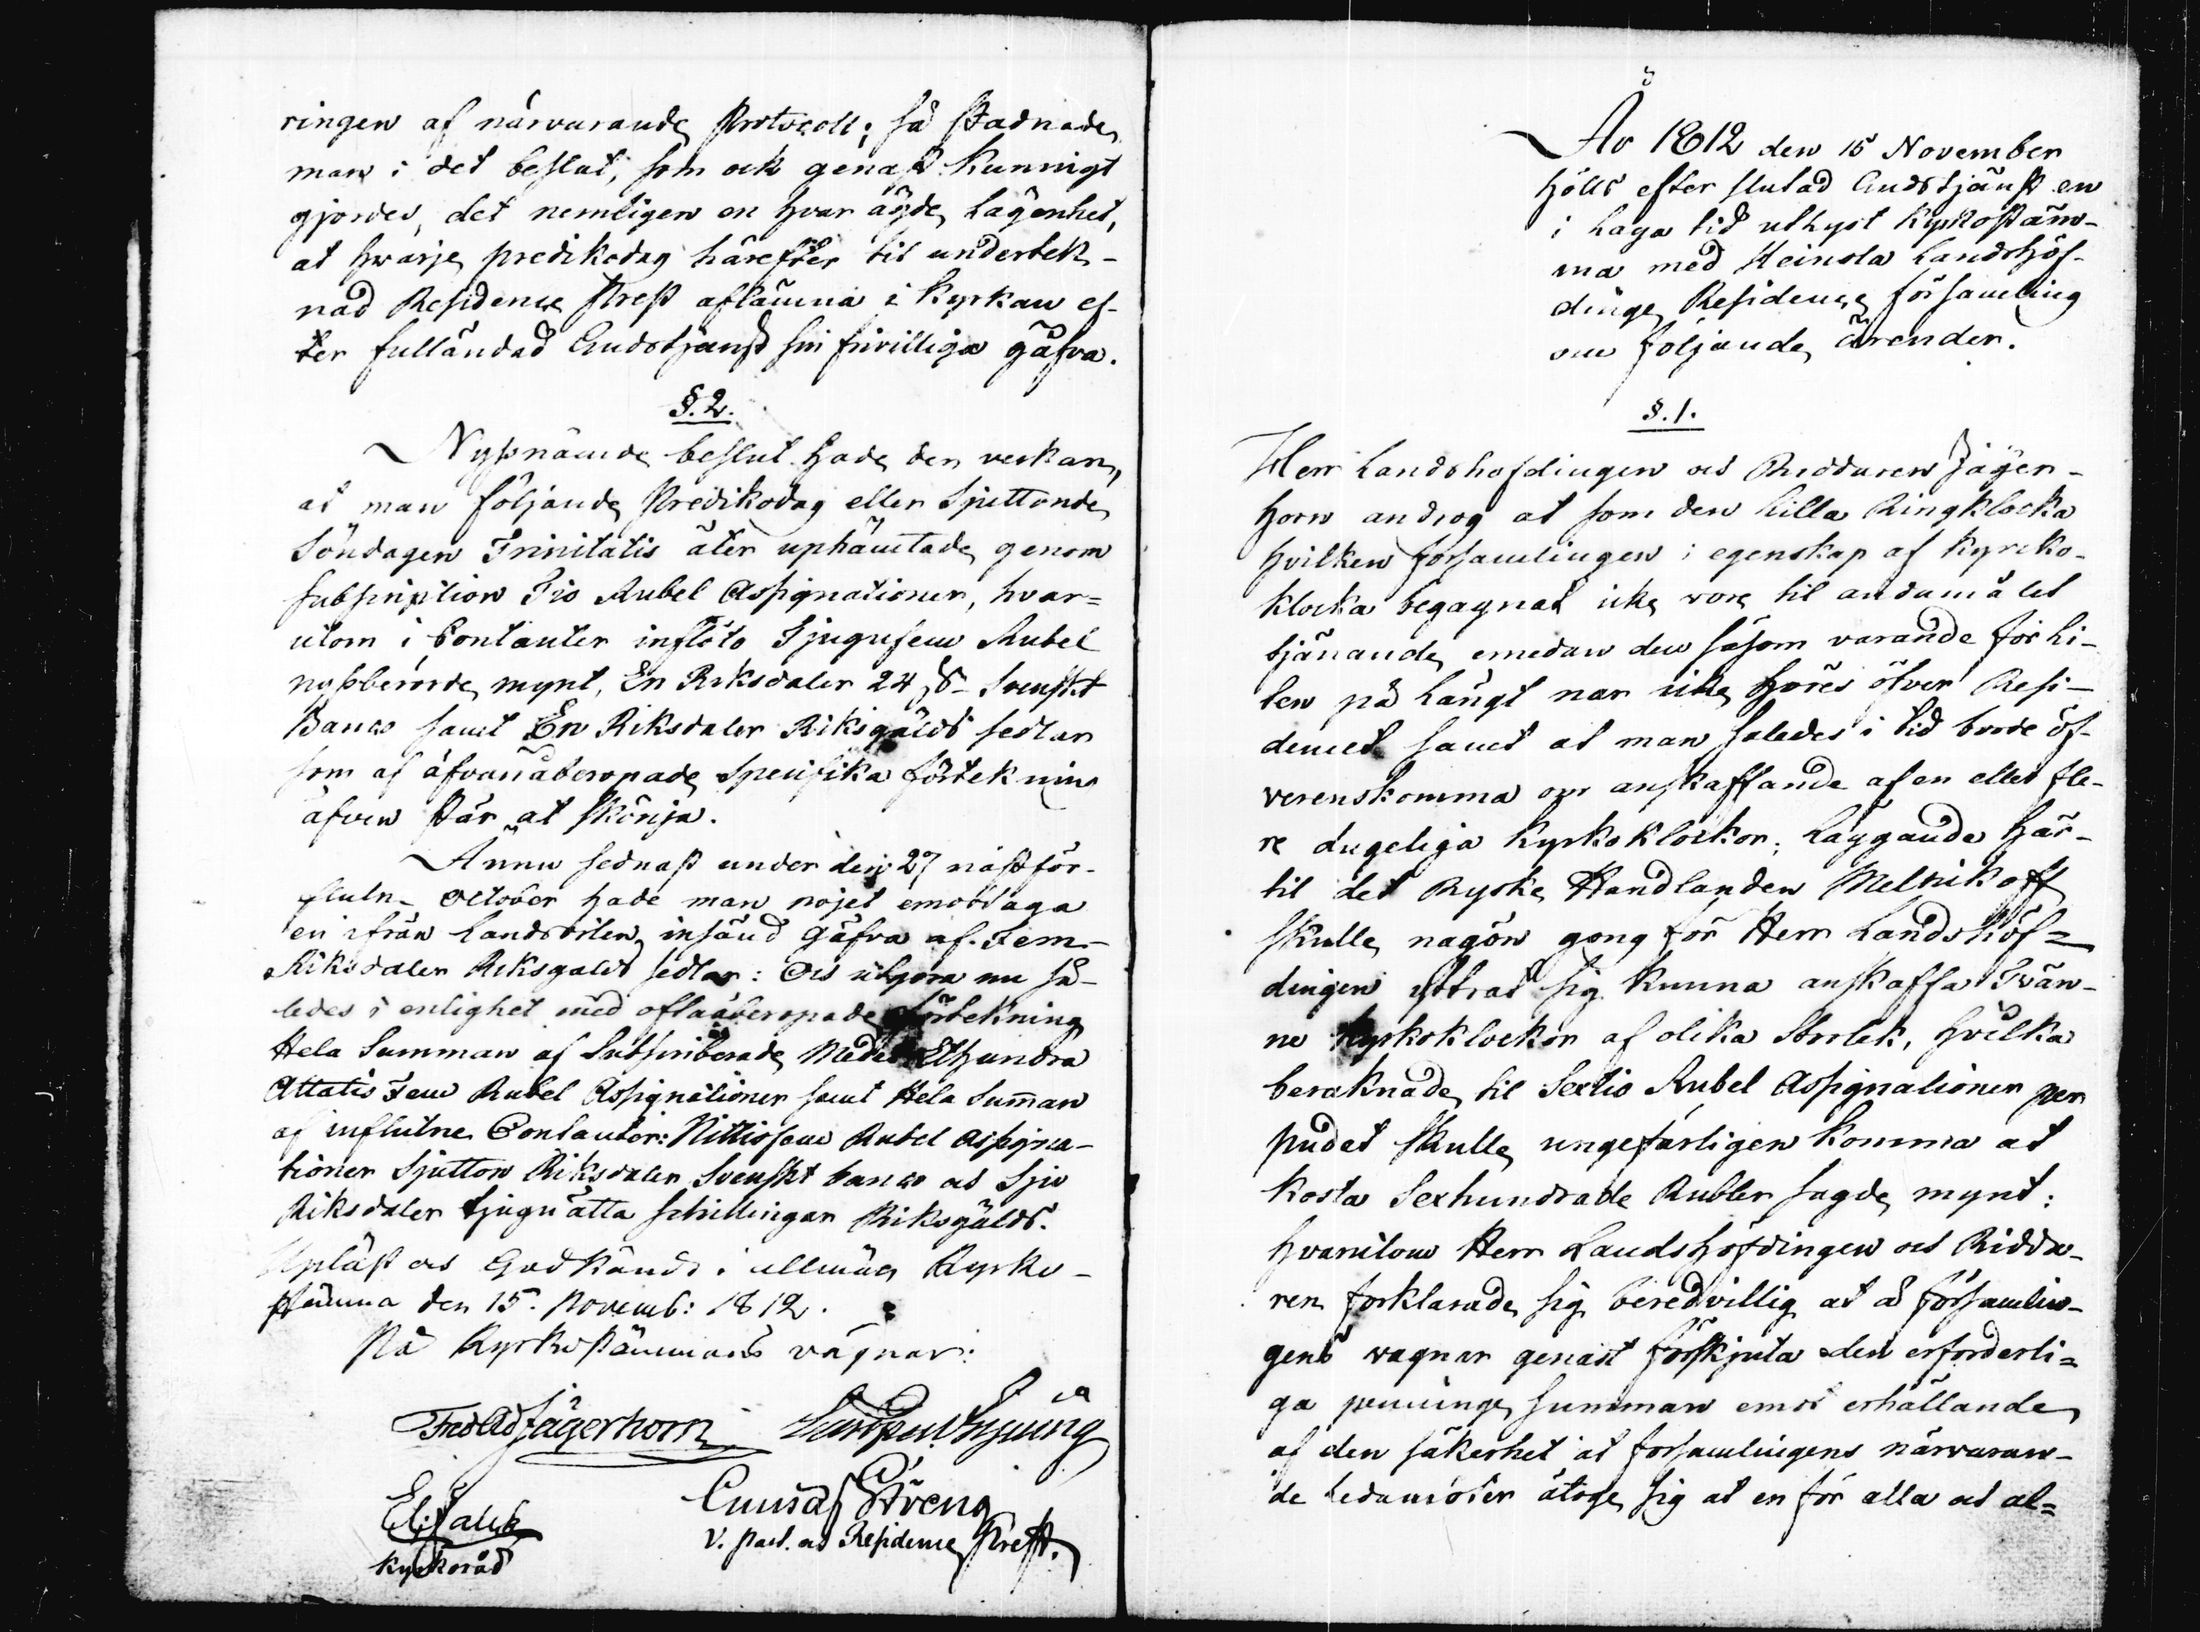 ringen af närvarande Protocoll; så stadnade
man i det beslut, som ock genast kunnigt
gjordes, det nemligen en hvar ägde Lägenhet,
at hwarje predikodag härefter til undertek-
nad Residence Prest aflämna i Kyrkan ef-
ter fulländad Gudstjenst sin frivilliga gåfva.
§. 2.
Nyssnämde beslut hade den verkan,
at man följande Predikodag eller Sjuttonde
Söndagen Trinitatis åter uphämtade genom
subscription Tio Rubel Assignationer, hvar=
utom i Contanter inflöto Tjugufem Rubel
nyssberörde mynt, En Riksdaler 24 s. Svenskt
Banco samt En Riksdaler Riksgälds sedlar
som af åfvanåberopade Specifika förtekning
äfven står at skönja.
Ännu sednast under den 27 nästför-
flutn. October hade man nöjet emottaga
en ifrån Landsorten insänd gåfva af Fem
Riksdaler Riksgälds sedlar: Och utgöra nu så-
ledes i enlighet med oftaåberopade förtekning
Hela Summan af Subscriberade Medel Etthundra
Attatio Fem Rubel Assignationer samt Hela Summan
af influtne Contanter: Nittiofem Rubel Assigna-
tioner Sjutton Riksdaler Svenskt banco och Sju
Riksdaler tjuguåtta schillingar Riksgälds.
Upläst och Godkändt i allmän Kyrko-
stämma den 15. Novemb: 1812.
På Kyrkostämmans vägnar:
Fred Ad Jägerhorn
Gustaf Ströeng
kyrkoråd
V. Past. och Residence Prest.
År 1812 den 15 November
hölls efter slutad Gudstjänst en
i Laga tid utlyst Kyrkostäm-
ma med Heinola Landshöf-
dinge Residence församling
om följande ärender.
§. 1.
Herr Landshöfdingen och Riddaren Jäger-
horn androg at som den lilla Ringklocka
hvilken församlingen i egenskap af Kyrcko-
klocka begagnat icke vore til ändamålet
tjänande, emedan den såsom varande för li-
ten på långt när icke höres öfver Resi-
dencet samt at man således i tid borde öf-
verenskomma om anskaffande af en eller fle-
re dugeliga Kyrkoklockor; Läggande här-
til det Ryske Handlanden Melnikoff
skulle någon gång för Herr Landshöf=
dingen yttrat sig kunna anskaffa Tvän-
ne Kyrkoklockor af olika Storlek, hvilka
beräknade til Sextio Rubel Assignationer per
pudet skulle ungefärligen komma at
kosta Sexhundrade Rubler sagde mynt:
hvarutom Herr Landshöfdingen och Ridda-
ren förklarade sig beredvillig at å församlin-
gens vägnar genast förskjuta den erforderli=
ga penninge summan emot erhållande
af den säkerhet at församlingens närvaran-
de Ledamöter åtoge sig at en för alla och al=